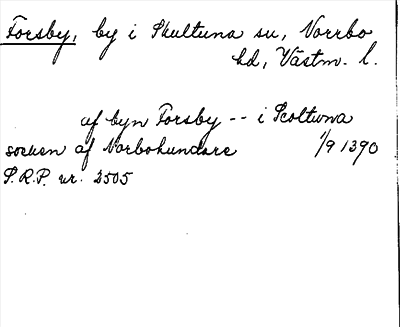 Forsby, by i Skultuna sn, Norrbo
hd, Västm. l.
af byn Forsby -- i Scoltuna
socken af Norbohundare 1/9 1390
S.R.P. nr. 2505